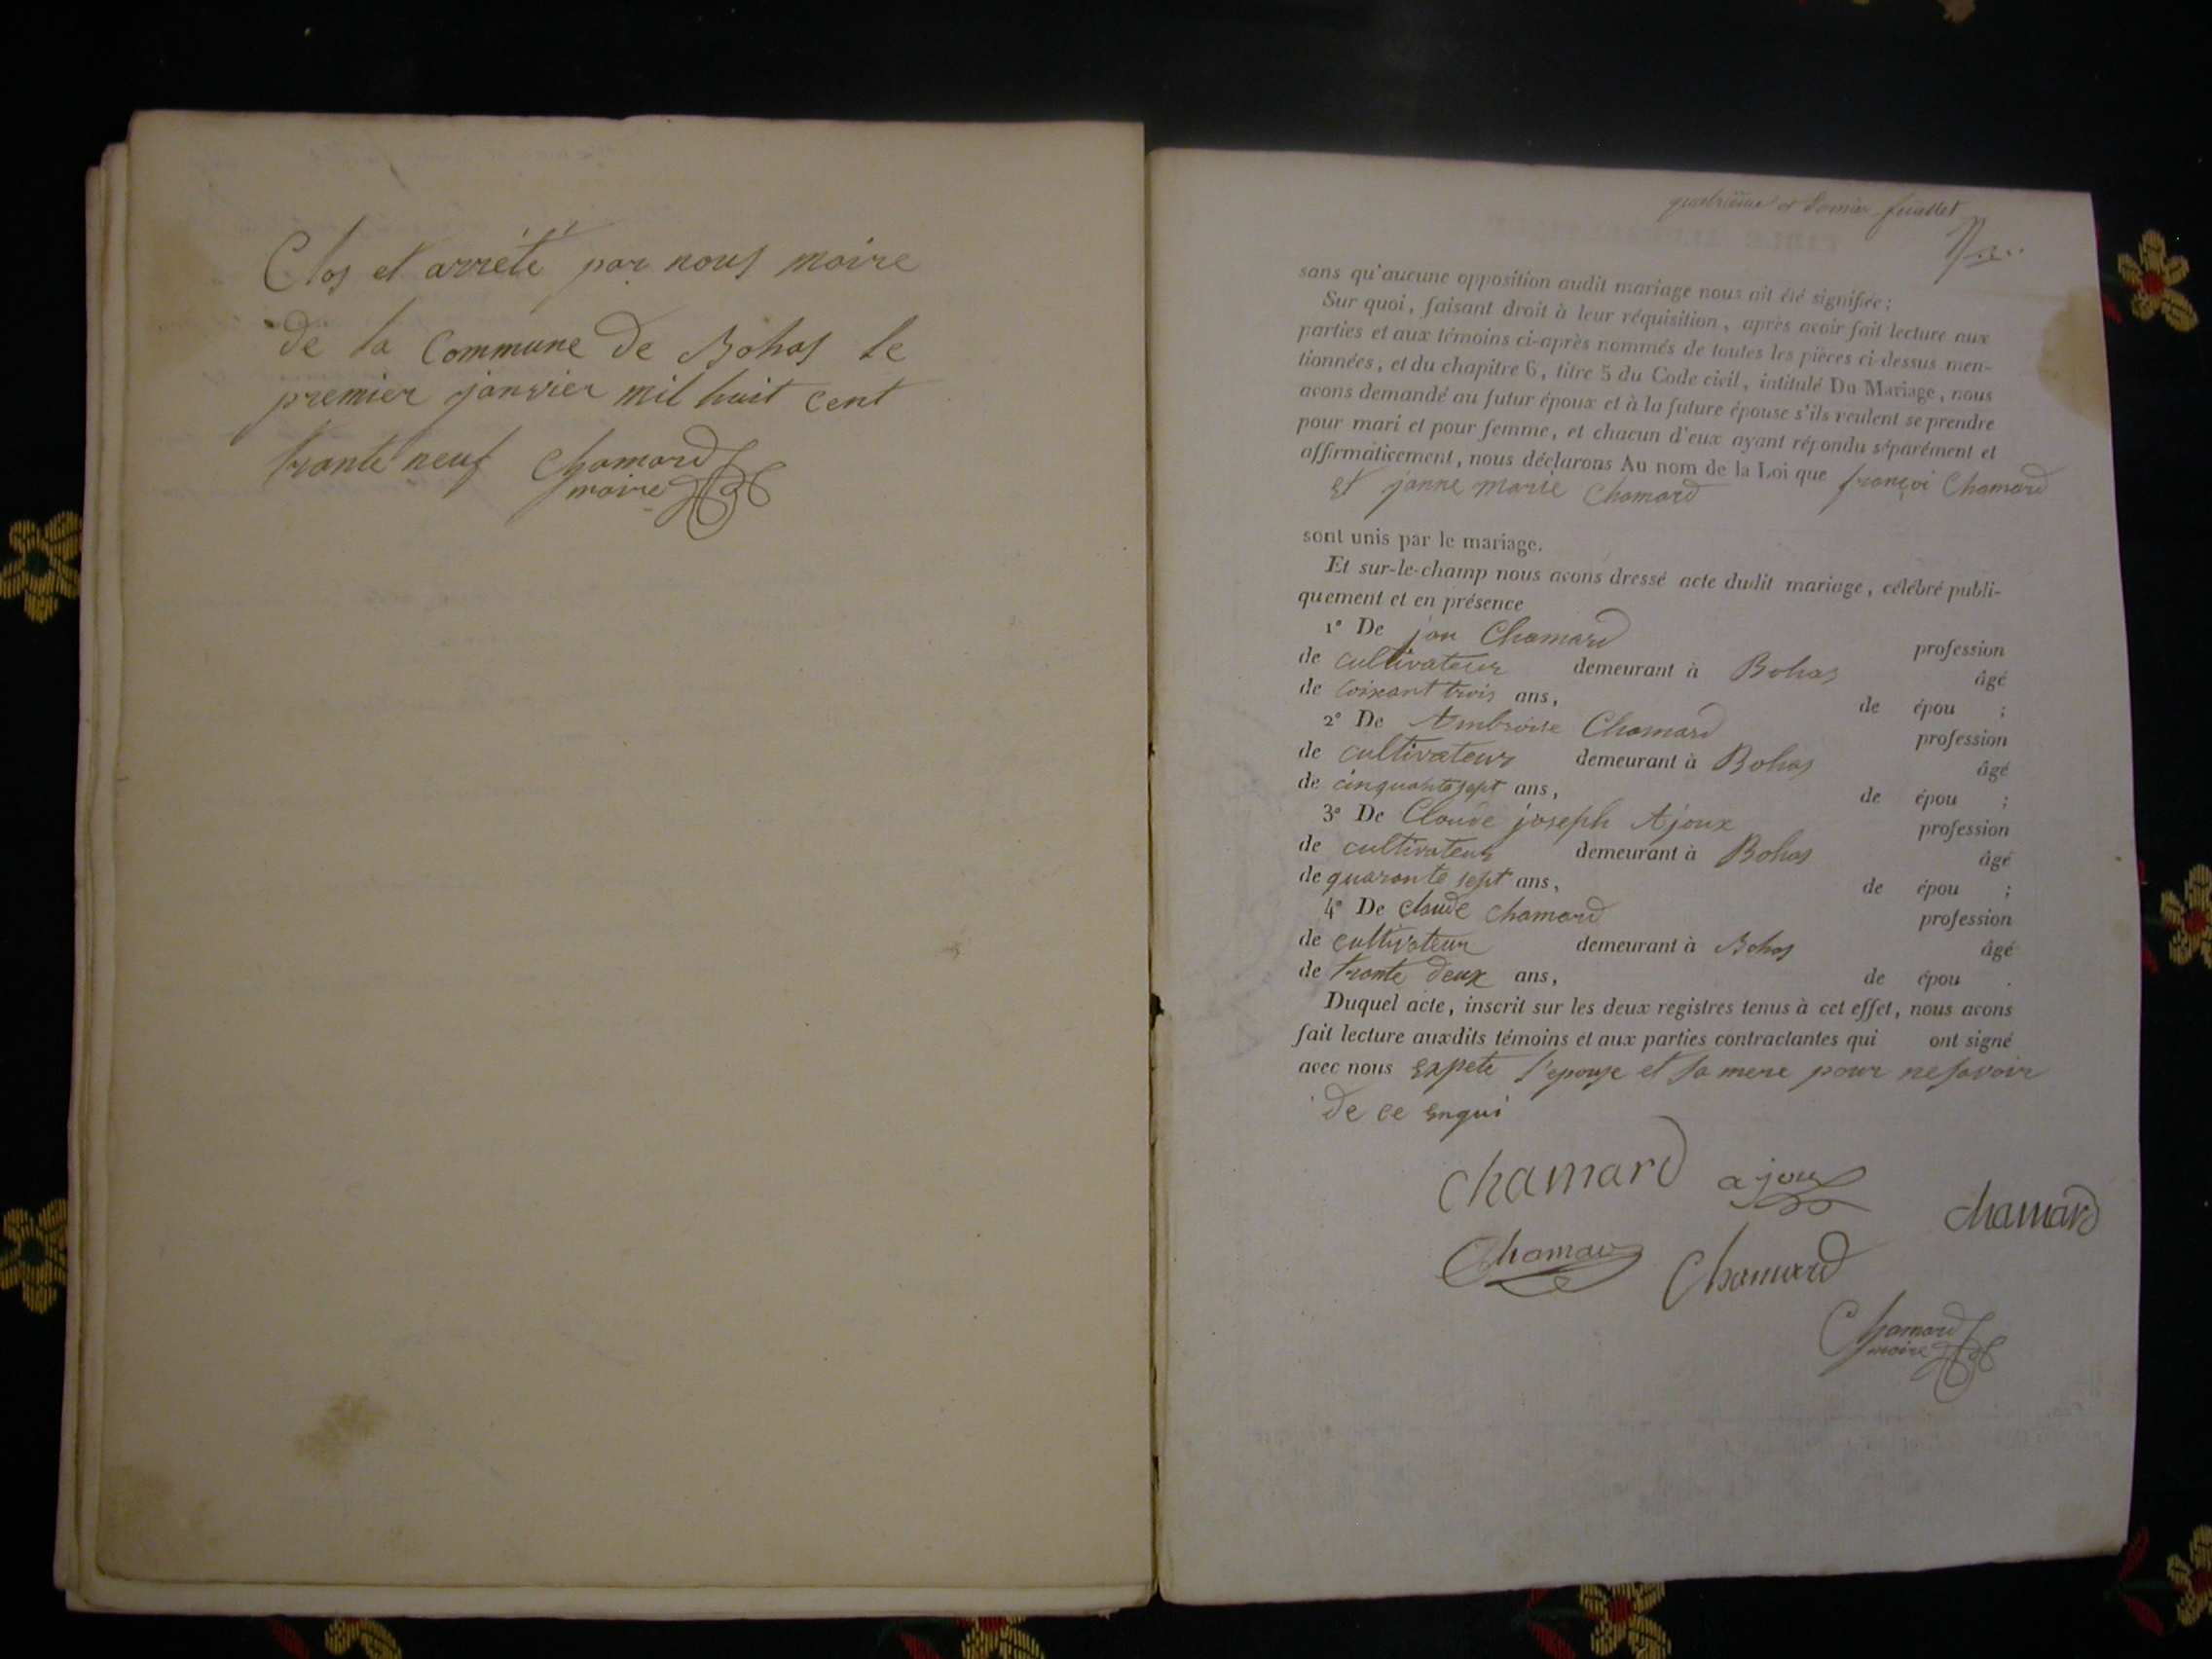 Clos et arrété par nous maire
de la Commune de Bohas le
premier janvier mil huit cent
trante neuf Chamard
maire
quatrième et dernier feuillet
sans qu'aucune opposition audit mariage nous ait été signifiée ;
Sur quoi, faisant droit à leur réquisition, après avoir fait lecture aux
parties et aux témoins ci-après nommés de toutes les pièces ci-dessus men-
tionnées, et du chapitre 6, titre 5 du Code civil, intitulé Du Mariage, nous
avons demandé au futur époux et à la future épouse s'ils veulent se prendre
pour mari et pour femme, et chacun d'eux ayant répondu séparément et
affirmativement, nous déclarons Au nom de la Loi que françoi Chamard
et janne marie Chamard
sont unis par le mariage.
Et sur-le-champ nous avons dressé acte dudit mariage, célébré publi-
quement et en présence
1° De jan Chamard profession
de cultivateur demeurant à Bohas âgé
de soixant trois ans, de épou ;
2° De Ambroise Chamard profession
de cultivateur demeurant à Bohas âgé
de cinquante sept ans, de épou ;
3° De Claude joseph Ajoux profession
de cultivateur demeurant à Bohas âgé
de quarante sept ans, de épou ;
4° De claude chamard profession
de cultivateur demeurant à Bohas âgé
de trante deux ans, de épou .
Duquel acte, inscrit sur les deux registres tenus à cet effet, nous avons
fait lecture auxdits témoins et aux parties contractantes qui ont signé
avec nous expete l'epouse et sa mere pour ne savoir
de ce enqui
chamard ajoux chamard
Chamard Chamard
Chamard
maire